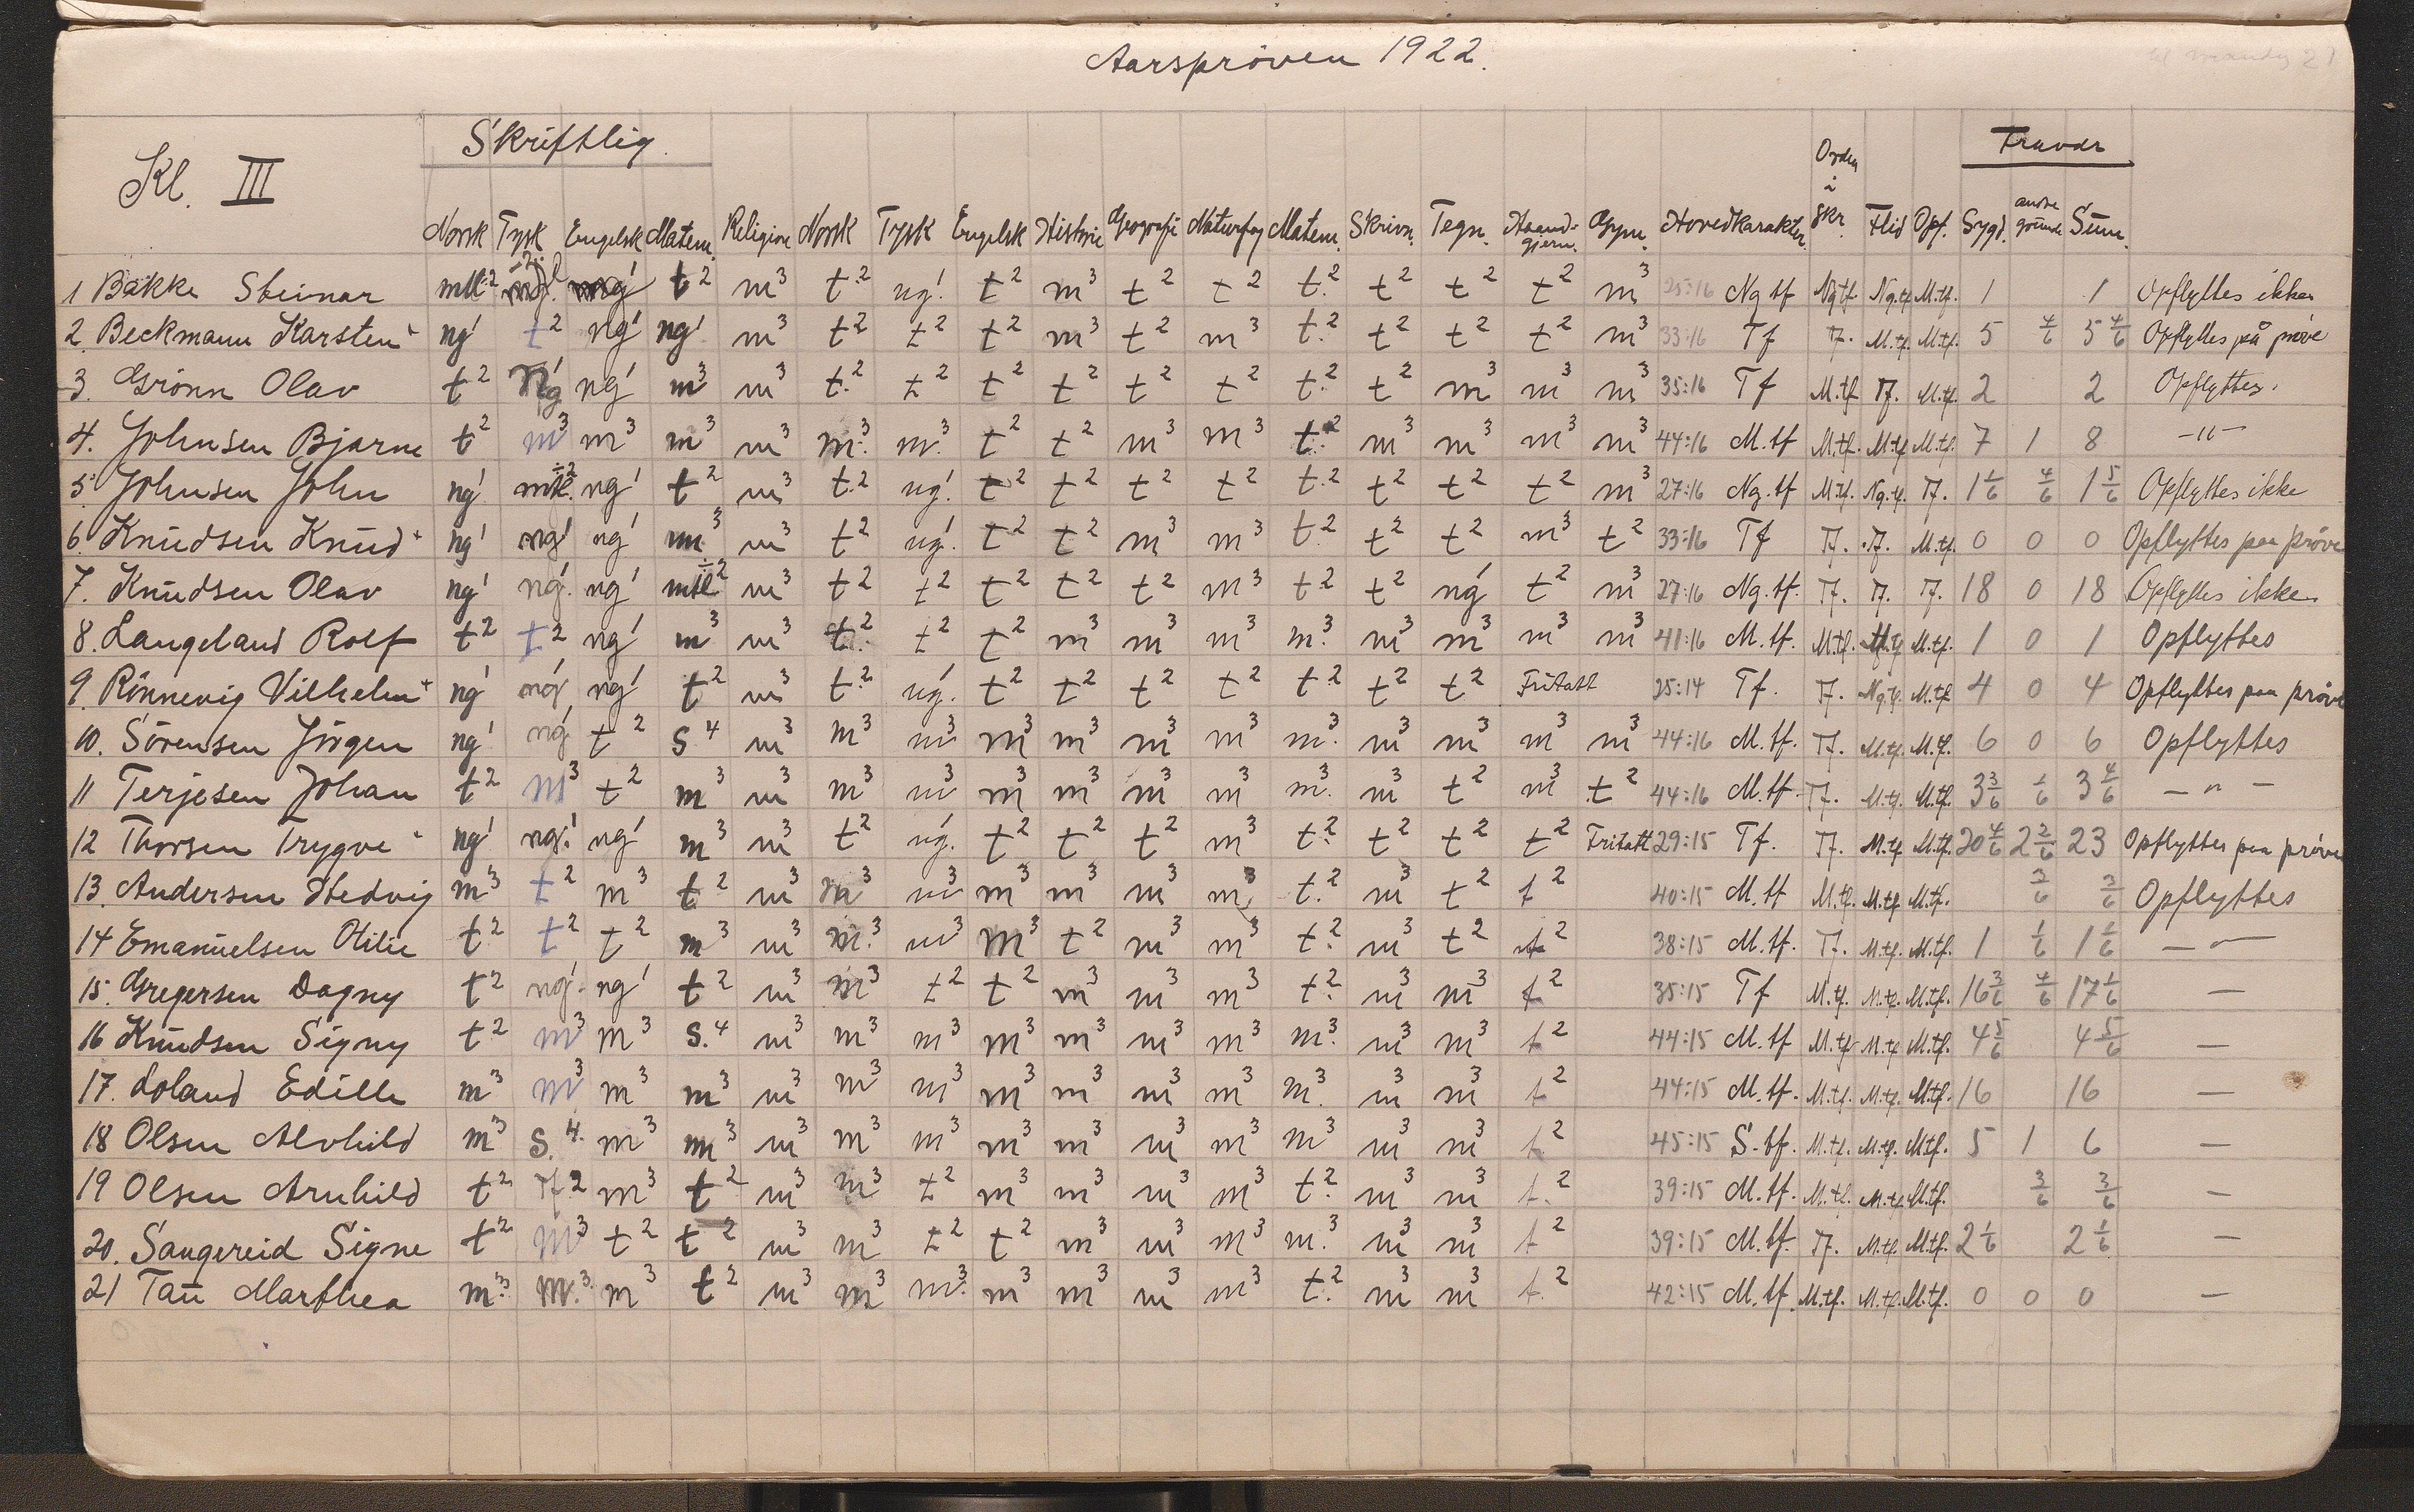 Aarsprøven 1922.
Kl. III Skriftlig. Fravær
Norsk Tysk Engelsk Matem. Religion Norsk Tysk Engelsk Historie Geografi Naturfag Matem. Skrivn. Tegn. Haandgjern. Gym. Hovedkarakter Orden i skr. Flid Opf. Sygd. andre grunde Sum.
1 Bakke Steinar mtl÷2 t2 m3 t2 ng1 t2 m3 t2 t2 t2 t2 t2 t2 m3 25:16 Ng tf Ng tf Ng.tf M.tf. 1 1 Opflyttes ikke
2. Beckmann Karsten ng1 t2 ng1 ng1 m3 t2 t2 t2 m3 t2 m3 t2 t2 t2 t2 m3 33:16 Tf Tf. M.tf. M.tf. 5 4/6 5 4/6 Opflyttes på prøve
3. Grönn Olav t2 Ng1 ng1 m3 m3 t2 t2 t2 t2 t2 t2 t2 t2 m3 m3 m3 35:16 Tf M.tf Tf. M.tf. 2 2 Opflyttes.
4. Johnsen Bjarne t2 m3 m3 m3 m3 m3 m3 t2 t2 m3 m3 t2 m3 m3 m3 m3 44:16 M.tf M.tf. M.tf M.tf. 7 1 8 -"-
5 Johnsen John ng1 mtl÷2 ng1 t2 m3 t2 ng1 t2 t2 t2 t2 t2 t2 t2 t2 m3 27:16 Ng.tf M.tf. Ng.tf. Tf. 1 1/6 4/6 1 5/6 Opflyttes ikke
6. Knudsen Knud ng1 ng1 ng1 m3 m3 t2 ng1 t2 t2 m3 m3 t2 t2 t2 m3 t2 33:16 Tf Tf. Tf. M.tf. 0 0 0 Opflyttes paa prøve
7. Knudsen Olav ng1 ng1 ng1 mtl÷2 m3 t2 t2 t2 t2 t2 m3 t2 t2 ng1 t2 m3 27:16 Ng.tf. Tf. Tf. Tf. 18 0 18 Opflyttes ikke
8. Langeland Rolf t2 t2 ng1 m3 m3 t2 t2 t2 m3 m3 m3 m3 m3 m3 m3 m3 41:16 M.tf. M.tf. M.tf M.tf. 1 0 1 Opflyttes
9. Rönnevig Vilhelm ng1 ng1 ng1 t2 m3 t2 ng1 t2 t2 t2 t2 t2 t2 t2 Fritatt 25:14 Tf. Tf. Ng.tf. M.tf 4 0 4 Opflyttes paa prøve
10. Sörensen Jörgen ng1 ng1 t2 S4 m3 m3 m3 m3 m3 m3 m3 m3 m3 m3 m3 m3 44:16 M.tf. Tf. M.tf. M.tf. 6 0 6 Opflyttes
11 Terjesen Johan t2 m3 t2 m3 m3 m3 m3 m3 m3 m3 m3 m3 m3 t2 m3 t2 44:16 M.tf. Tf. M.tf. M.tf. 3 3/6 1/6 3 4/6 -"-
12 Thorsen Trygve ng1 ng1 ng1 m3 m3 t2 ng1 t2 t2 t2 m3 t2 t2 t2 t2 Fritatt 29:15 Tf. Tf. M.tf M.tf. 20 4/6 2 2/6 23 Opflyttes paa prøve
13. Andersen Hedvig m3 t2 m3 t2 m3 m3 m3 m3 m3 m3 m3 t2 m3 t2 t2 40:15 M.tf M.tf. M.tf M.tf. 3/6 3/6 Opflyttes
14 Emanuelsen Otilie t2 t2 t2 m3 m3 m3 m3 m3 t2 m3 m3 t2 m3 t2 t2 38:15 M.tf. Tf. M.tf. M.tf. 1 1/6 1 1/6 -"-
15. Gregersen Dagny t2 ng1 ng1 t2 m3 m3 t2 t2 m3 m3 m3 t2 m3 m3 t2 35:15 Tf M.tf. M.tf. M.tf. 16 3/6 4/6 17 1/6 —
16 Knudsen Signy t2 m3 m3 S.4 m3 m3 m3 m3 m3 m3 m3 m3 m3 m3 t2 44:15 M.tf M.tf M.tf M.tf. 4 5/6 4 5/6 —
17. Loland Edille m3 m3 m3 m3 m3 m3 m3 m3 m3 m3 m3 m3 m3 m3 t2 44:15 M.tf. M.tf. M.tf. M.tf. 16 16 —
18 Olsen Alvhild m3 S.4 m3 m3 m3 m3 m3 m3 m3 m3 m3 m3 m3 m3 t2 45:15 S.tf. M.tf. M.tf. M.tf. 5 1 6 —
19 Olsen Arnhild t2 Tf2 m3 t2 m3 m3 t2 m3 m3 m3 m3 t2 m3 m3 t2 39:15 M.tf. M.tf. M.tf M.tf. 3/6 3/6 —
20. Sangereid Signe t2 m3 t2 t2 m3 m3 t2 t2 m3 m3 m3 m3 m3 m3 t2 39:15 M.tf. Tf. M.tf. M.tf. 2 1/6 2 1/6 —
21 Tau Marthea m3 m3 m3 t2 m3 m3 m3 m3 m3 m3 m3 t2 m3 m3 t2 42:15 M.tf. M.tf. M.tf. M.tf. 0 0 0 —